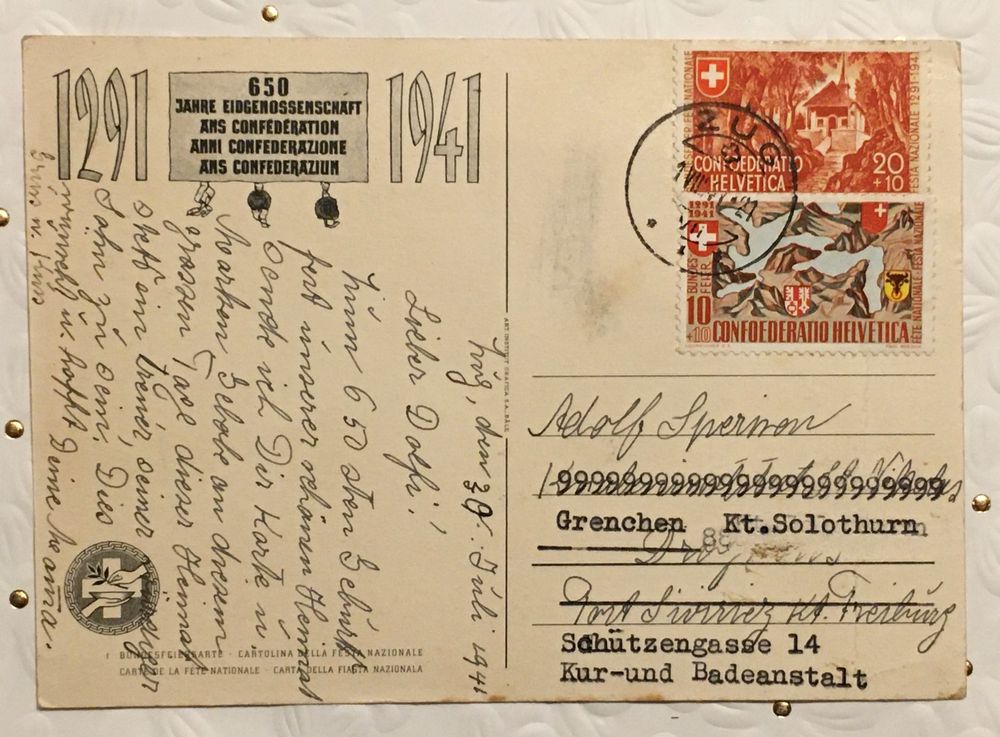 1291
650
JAHRE EIDGENOSSENSCHAFT
ANS CONFÉDÉRATION
ANNI CONFEDERAZIONE
ANS CONFEDERAZIUN
1941
Zug, den 30. Juli 1941
Lieber Dolfi!
Zum 650 sten Geburts
fest unserer schönen Heimat
sende ich Dir Karte u
Marken. Gelobe an diesem
grossen Tage dieser Heimat
stets ein treuer,
Sohn zu sein. Dies
wünscht u. hofft Deine Mama.
BUNDESFEIERKARTE · CARTOLINA DELLA FESTA NAZIONALE
CARTE DE LA FÊTE NATIONALE · CARTA DELLA FIASTA NAZIONALA
ART. INSTITUT GRAFICA S.A. BÂLE
BUNDESFEIER FÊTE NATIONALE
FESTA NAZIONALE 1291-1941
CONFOEDERATIO
HELVETICA
20
+10
ZUG
1291
1941
BUNDES
FEIER
10
+10
CONFOEDERATIO HELVETICA
FÊTE NATIONALE · FESTA NAZIONALE
Adolf
999999999999999999999999
Grenchen Kt.Solothurn
Kt. Freiburg
Schützengasse 14
Kur-und Badeanstalt